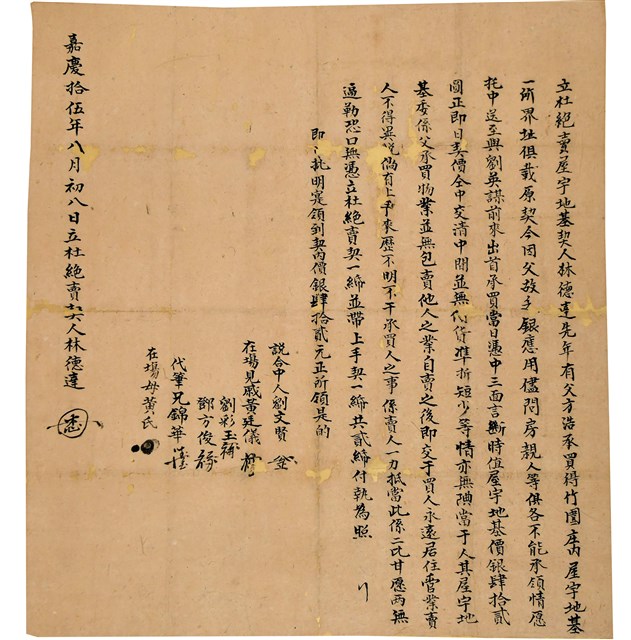 立杜絕賣屋宇地基契人林德達先年有父方浩承買得竹園庄內屋宇地基
一所界址俱載原契今因父故乏銀應用儘問房親人等俱各不能承領情愿
托中送至與劉英謀前來出首承買當日憑中三面言斷時值屋宇地基價銀肆拾貳
圓正即日契價仝中交清中間並無代貨準折短少等情亦無典當于人其屋宇地
基委係父承買物業並無包賣他人之業自賣之後即交于買人永遠居住管業賣
人不得異說倘有上手來歷不明不干承買人之事係賣人一力抵當此係二比甘愿两無
逼勒恐口無憑立杜絕賣契一紙並帶上手契一紙共貳紙付執為照
即日批明寔領到契內價銀肆拾貳元正所領是的
說合中人劉文賢
在場見戚黃廷儀
劉彩玉
鄧方俊
代筆兄錦華
在場母黃氏
嘉慶拾伍年八月初八日立杜絕賣契人林德達